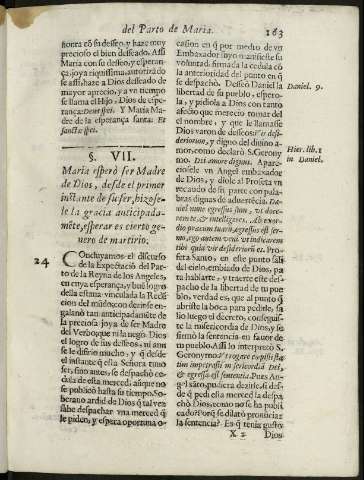 del Parto de Maria. 163
siona cõ su deseo, y haze muy
precioso el bien deseado. Assi
Maria con su deseo, y esperan-
ça joya riquissima, autorizado
se assi, haze a Dios deseado de
mayor aprecio, y a vn tiempo
se llama el Hijo, Dios de espe-
rança: Deus spei. Y Maria Ma-
dre de la esperança santa: Et
sanctæ spei.
§. VII.
Maria esperó ser Madre
de Dios, desde el primer
instante de su ser, hizose-
le la gracia anticipada-
mẽte, esperar es cierto ge-
nero de martirio.
24 Concluyamos el discurso
de la Expectaciõ del Par-
to de la Reyna de los Angeles,
en cuya esperança, y
la estima vinculada la Redẽ
cion del mũdo,
galanò tan anticipadamẽte de
la preciosa joya de ser Madre
del Verbo, que ni la negò Dios
el logro de sus deseos, ni aun
se le difiriò mucho, y q̃ desde
el instante q̃ esta Señora tuuo
ser, sino antes, se despachò ce-
dula de esta merced, aũque no
se publicò hasta su tiempo. So-
berano ardid de Dios q̃ tal vez
sabe despachar vna merced q̃
le piden, y espera oportuna o-
casion en q̃ por medio de vn
Embaxador suyo manifieste su
voluntad, firmada la cedula cõ
la anterioridad del punto en q̃
se despachò. Deseò Daniel la
libertad de su pueblo, espero-
la, y pidiola a Dios con tanto
afecto que mereciò tomar del
el nombre, y que le llamasse
Dios varon de deseos: Vir desi-
deriorum, y digno del diuino a-
mor, como declarò S. Gerony
mo. Dei amore dignus. Apare-
ciosele vn Angel embaxador
de Dios, y dixole al Profeta vn
recaudo de su parte con pala-
bras dignas de aduertẽcia. Da-
niel nunc egressus sum, vt doce-
rem te, & intelligeres. Ab exor-
dio precum tuarũ, egressus est ser-
mo, ego autem veni vt indicarem
tibi quia vir desideriorũ es. Pro
feta Santo, en este punto salì
del cielo, embiado de Dios, pa
ra hablarte, y traerte este des-
pacho de la libertad de tu pue-
blo, verdad es, que al punto q̃
abriste la boca para pedirle, sa
lio luego el decreto, consegui-
ste la misericordia de Dios, y se
firmò la sentencia en fauor de
tu pueblo. Assi lo interpretò S.
Geronymo: Vt rogare cœpisti sta
tim impetrasti misericordiã Dei,
& egressa est sententia. Pues An-
gel sãto, pudiera dezirle, si des-
de q̃ pedi essa merced la despa
chò Dios, como no se ha publi
cado? Porq̃ se dilatò pronũciar
la sentencia? Es q̃ tenia gusto
X 2 Dios
Daniel. 9.
Hier. lib. 1
in Daniel.